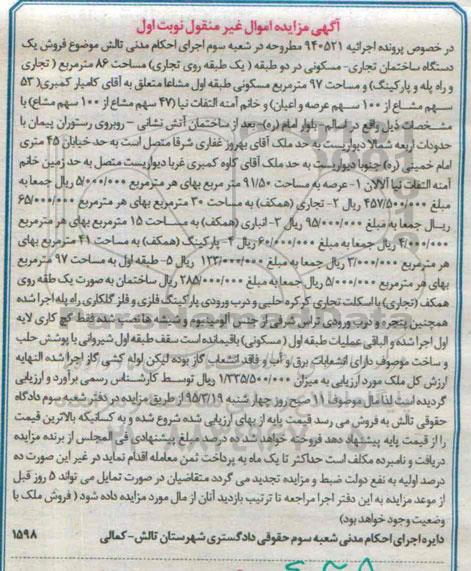 آگهی مزایده اموال غیر منقول نوبت اول
در خصوص پرونده اجرائیه ۹۴۰۵۲۱ مطروحه در شعبه سوم اجرای احکام مدنی تالش موضوع فروش یک
دستگاه ساختمان تجاری- مسکونی در دو طبقه (یک طبقه روی تجاری) مساحت ۸۶ مترمربع (تجاری
و راه پله و پارکینگ) و مساحت ۹۷ مترمربع مسکونی طبقه اول مشاعا متعلق به آقای کامیار کمیری( ۵۳
سهم مشاع از ۱۰۰ سهم عرصه و اعیان) و خانم آمنه التفات نیا (۴۷ سهم مشاع از ۱۰۰ سهم مشاع) با
مشخصات ذیل واقع در اسالم- بلوار امام (ره)- بعد از ساختمان آتش نشانی - روبروی رستوران پیمان با
حدودات اربعه شمالا دیواریست به حد ملک آقای بهروز غفاری شرقا متصل است به حد خیابان ۴۵ متری
امام خمینی (ره) جنوبا دیواریست به حد ملک آقای کاوه کمیری غربا دیواریست متصل به حد زمین خانم
آمنه التفات نیا آلالان ۱- عرصه به مساحت ۹۱/۵۰ متر مربع بهای هر مترمربع ۵/۰۰۰/۰۰۰ ریال جمعا به
مبلغ ۴۵۷/۵۰۰/۰۰۰ ریال ۲- تجاری (همکف) به مساحت ۳۰ مترمربع بهای هر مترمربع ۶۵/۰۰۰/۰۰۰
ریال جمعا به مبلغ ۹۵/۰۰۰/۰۰۰ ریال ۳- انباری (همکف) به مساحت ۱۵ مترمربع بهای هر مترمربع
۴/۰۰۰/۰۰۰ ریال جمعا به مبلغ ۶۰/۰۰۰/۰۰۰ ریال ۴- پارکینگ (همکف) به مساحت ۴۱ مترمربع بهای
هر مترمربع ۳/۰۰۰/۰۰۰ ریال جمعا به مبلغ ۱۲۳/۰۰۰/۰۰۰ ریال ۵- طبقه اول به مساحت ۹۷ مترمربع
بهای هر مترمربع ۵/۰۰۰/۰۰۰ ریال جمعا به مبلغ ۲۸۵/۰۰۰/۰۰۰ ریال ساختمان به صورت یک طقه روی
همکف (تجاری) با اسکلت تجاری کرکره حلبی و درب ورودی پارکینگ فلزی و فلز گلکاری راه پله اجرا شده
همچنین پنجره و درب ورودی تراس شرقی از جنس آلومینیوم و شیشه ها نصب شده فقط گچ کاری لایه
اول اجرا شده و الباقی عملیات طبقه اول (مسکونی) باقیمانده است سقف طبقه اول شیروانی با پوشش حلب
و ساخت موصوف دارای انشعابات برق و آب و فاقد انشعاب گاز بوده لیکن لوله کشی گاز اجرا شده النهایه
ارزش کل ملک مورد ارزیابی به میزان ۱/۳۳۵/۵۰۰/۰۰۰ ریال توسط کارشناس رسمی برآورد و ارزیابی
گردیده است لذا مال موصوف ۱۱ صبح روز چهار شنبه ۹۵/۳/۱۹ از طریق مزایده در دفتر شعبه سوم دادگاه
حقوقی تالش به فروش می رسد قیمت پایه از بهای ارزیابی شده شروع شده و به کسانیکه بالاترین قیمت
را از قیمت پایه پیشنهاد دهد فروخته خواهد شد ده درصد مبلغ پیشنهادی فی المجلس از برنده مزایده
دریافت و نامبرده مکلف است حداکثر تا یک ماه به پرداخت ثمن معامله اقدام نماید در غیر این صورت ده
درصد اولیه به نفع دولت ضبط و مزایده تجدید می گردد متقاضیان در صورت تمایل می تواند ۵ روز قبل
از موعد مزایده به این دفتر اجرا مراجعه تا ترتیب بازدید آنان از مال مورد مزایده داده شود ( فروش ملک با
وضعیت وجود خواهد بود)
دایره اجرای احکام مدنی شعبه سوم حقوقی دادگستری شهرستان تالش- کمالی ۱۵۹۸